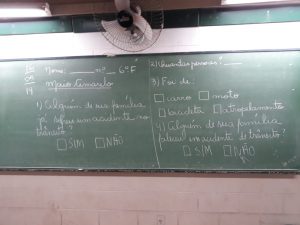 Nome: ______ nº __ 6º F
Maio Amarelo
1) Alguém de sua família
já sofreu um acidente no
trânsito?
□ SIM □ NÃO
2) Quantas pessoas? ____
3) Foi de:
□ carro □ moto
□ bicicleta □ atropelamento
4) Alguém de sua família
faleceu em acidente de trânsito?
□ SIM □ NÃO